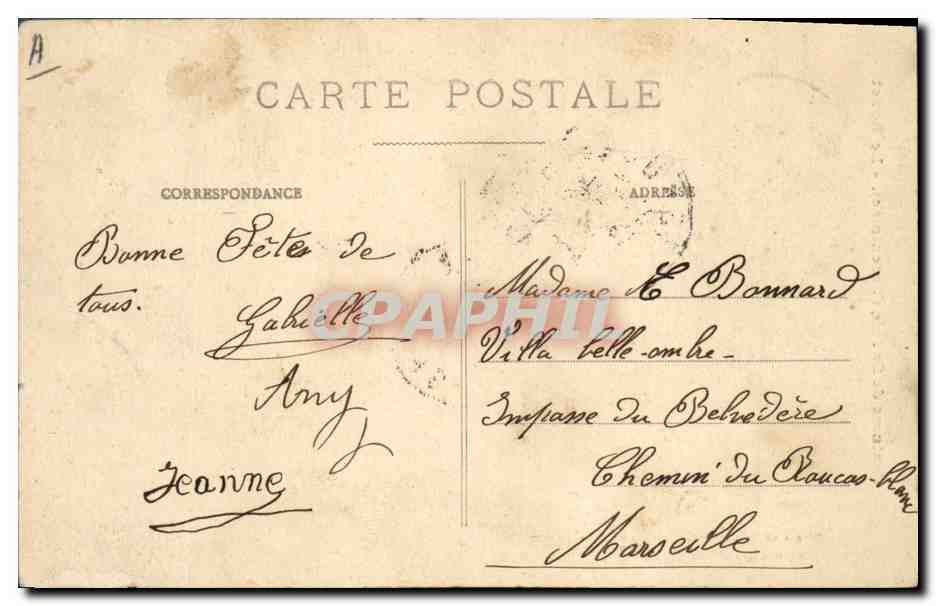 A
CARTE POSTALE
CORRESPONDANCE
Bonne Fêtes de
tous.
Gabrielle
Any
Jeanne
ADRESSE
Madame E Bonnard
Villa belle-ombre-
Impasse du Belvédère
Chemin du Roucas-blanc
Marseille
CPAPHIL